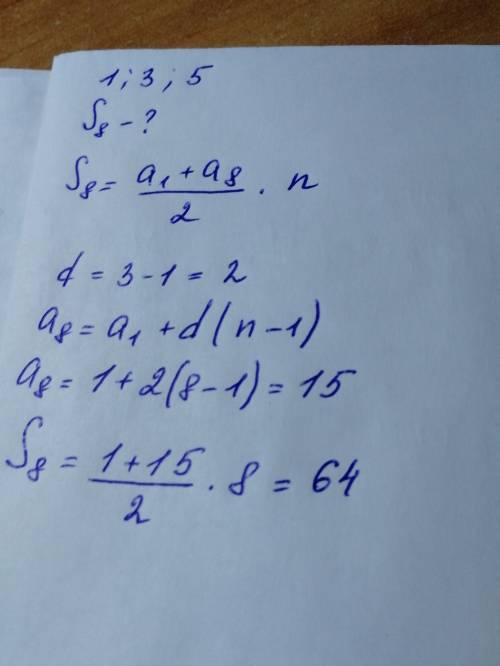 1; 3; 5
S₈ - ?
S₈ = (a₁ + a₈)/2 · n
d = 3 - 1 = 2
a₈ = a₁ + d(n - 1)
a₈ = 1 + 2(8 - 1) = 15
S₈ = (1 + 15)/2 · 8 = 64